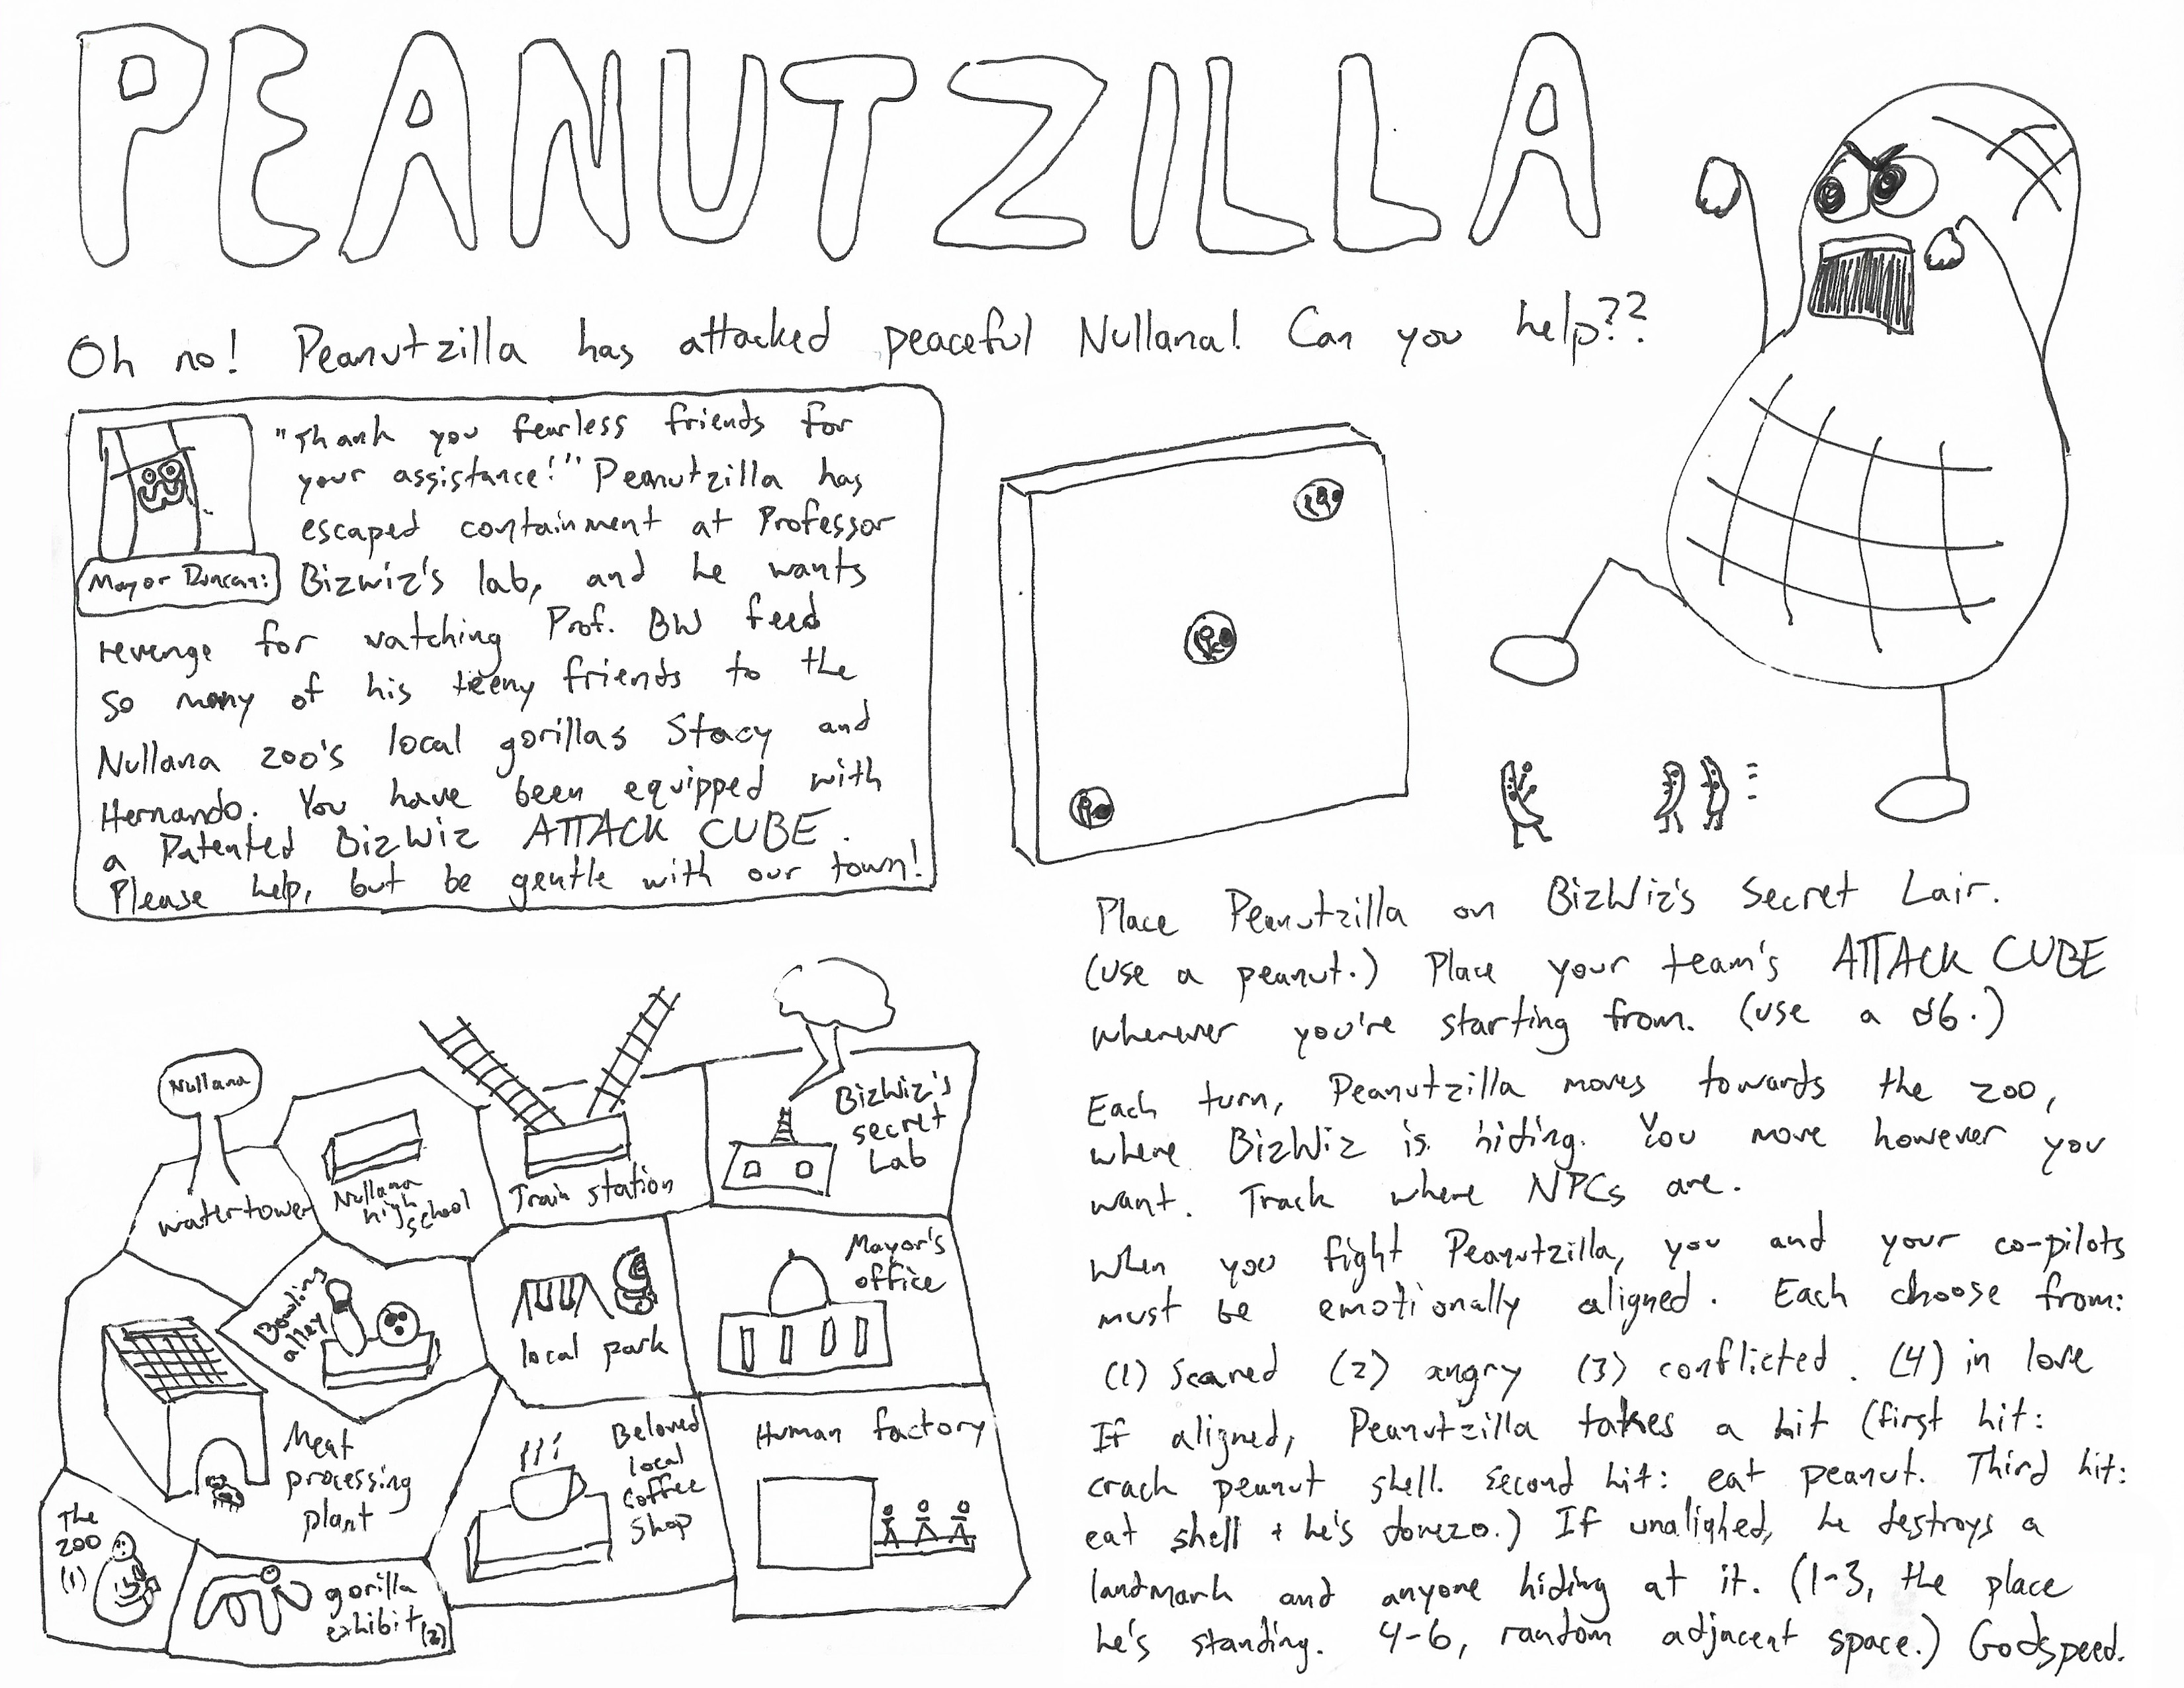 PEANUTZILLA
Oh no! Peanutzilla has attacked peaceful Nullana! Can you help??
"Thank you fearless friends for
your assistance!" Peanutzilla has
escaped containment at Professor
Mayor Duncan:
Bizwiz's lab, and he wants
revenge for watching Prof. BW feed
so many of his teeny friends to the
Nullana zoo's local gorillas Stacy and
Hernando. You have been equipped with
a Patented BizWiz ATTACK CUBE.
Please help, but be gentle with our town!
Place Peanutzilla on BizWiz's Secret Lair.
(use a peanut.) Place your team's ATTACK CUBE
wherever you're starting from. (use a d6.)
Each turn, Peanutzilla moves towards the zoo,
where BizWiz is hiding. You move however you
want. Track where NPCs are.
When you fight Peanutzilla, you and your co-pilots
must be emotionally aligned. Each choose from:
(1) Scared (2) angry (3) conflicted. (4) in love
If aligned, Peanutzilla takes a hit (first hit:
crack peanut shell. second hit: eat peanut. Third hit:
eat shell + he's donezo.) If unaligned, he destroys a
landmark and anyone hiding at it. (1-3, the place
he's standing. 4-6, random adjacent space.) Godspeed.
Nullana
watertower
Nullana
high
school
Train station
BizWiz's
secret
Lab
Bowling
alley
local park
Mayor's
office
Meat
processing
plant
Beloved
local
coffee
shop
Human factory
The
zoo
(1)
gorilla
exhibit (2)